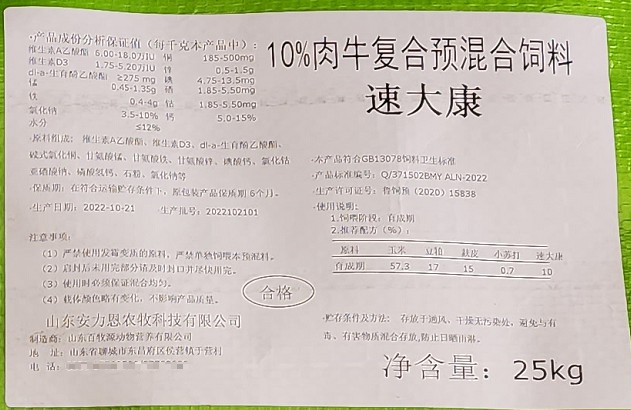 ·产品成份分析保证值（每千克本产品中）:
维生素A乙酸酯 6.00-18.0万IU 铜 185-500mg
维生素D3 1.75-5.20万IU 锌 0.5-1.5g
dl-a-生育酚乙酸酯 ≥275 mg 碘 4.75-13.5mg
锰 0.45-1.35g 硒 1.85-5.50mg
铁 0.4-4g 钴 1.85-5.50mg
氯化钠 3.5-10% 钙 5.0-15%
水分 ≤12%
·原料组成: 维生素A乙酸酯、维生素D3、dl-a-生育酚乙酸酯、
碱式氯化铜、甘氨酸锰、甘氨酸铁、甘氨酸锌、碘酸钙、氯化钴
亚硒酸钠、磷酸氢钙、石粉、氯化钠等
·保质期: 在符合运输贮存条件下, 原包装产品保质期 6个月。
·生产日期: 2022-10-21 ·生产批号: 2022102101
注意事项:
（1）严禁使用发霉变质的原料, 严禁单独饲喂本预混料。
（2）启封后未用完部分请及时封口并尽快用完。
（3）使用时必须保证混合均匀。
（4）载体颜色略有变化, 不影响产品质量。
合格
山东安力恩农牧科技有限公司
制造商: 山东百牧源动物营养有限公司
地 址: 山东省聊城市东昌府区侯营镇于营村
电 话:
10%肉牛复合预混合饲料
速大康
·本产品符合GB13078饲料卫生标准
·产品标准编号: Q/371502BMY ALN-2022
·生产许可证号: 鲁饲预（2020）15838
·使用说明:
1.饲喂阶段: 育成期
2.推荐配方（%）:
原料 玉米 豆粕 麸皮 小苏打 速大康
育成期 57.3 17 15 0.7 10
·贮存条件及方法: 存放于通风、干燥无污染处, 避免与有
毒、有害物质混合存放,防止日晒雨淋。
净含量: 25kg